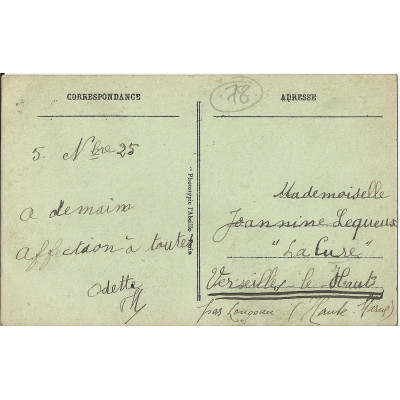 CORRESPONDANCE
ADRESSE
78
5. Nbre 25
a demain
affection à toutes
Odette
" Phototypie l'Abeille " Paris
Mademoiselle
Jeannine Lequeux
"La Cure"
Verseilles-le-Hauts
par Longeau (Haute-Marne)